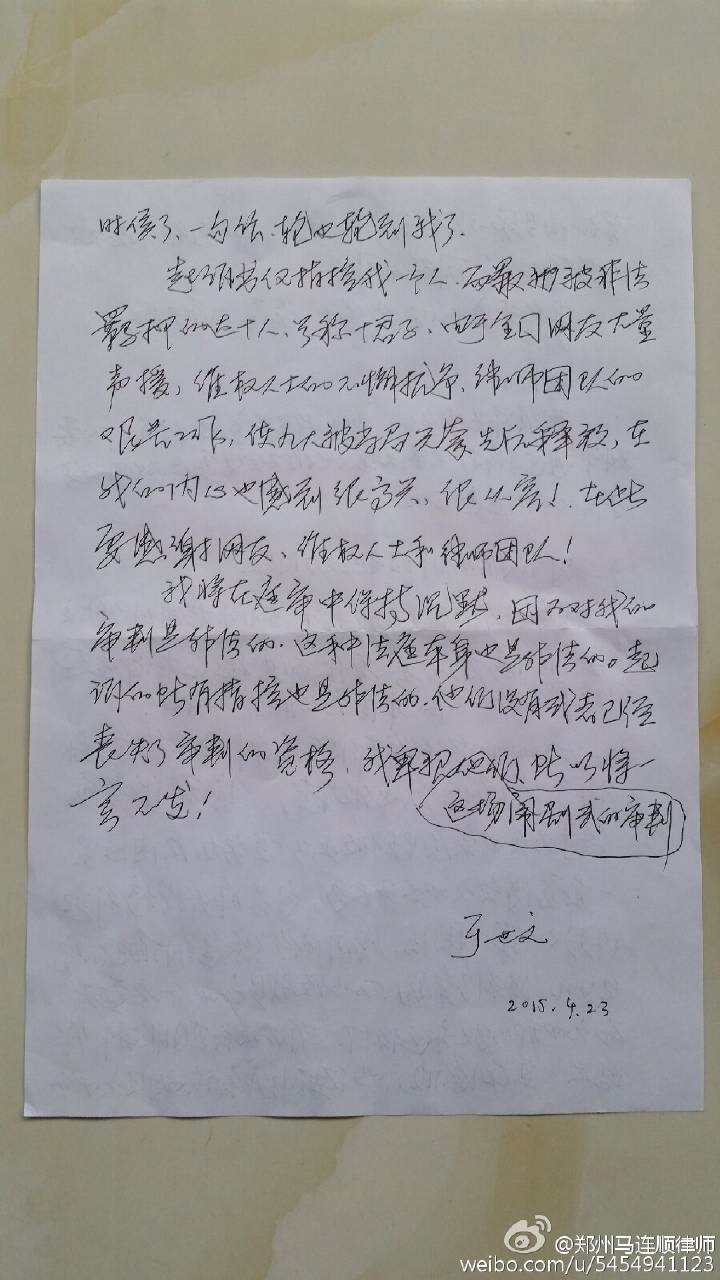 时候了、一句话、轮也轮到我了.
起诉书仅指控我一个人.而最初被非法
羁押的达十人、号称十君子、由于全国网友大量
声援，维权人士的不懈抗争、律师团队的
艰苦工作，使九人被当局无奈先后释放，在
我的内心也感到很高兴、很欣慰！在此
要感谢网友、维权人士和律师团队！
我将在庭审中保持沉默，因为对我的
审判是非法的.这种法庭本身也是非法的。起
诉的所有指控也是非法的.他们没有或者已经
丧失了审判的资格，我鄙视他们、所以将一
言不发！
这场闹剧式的审判
于世文
2015.4.23
@郑州马连顺律师
weibo.com/u/5454941123